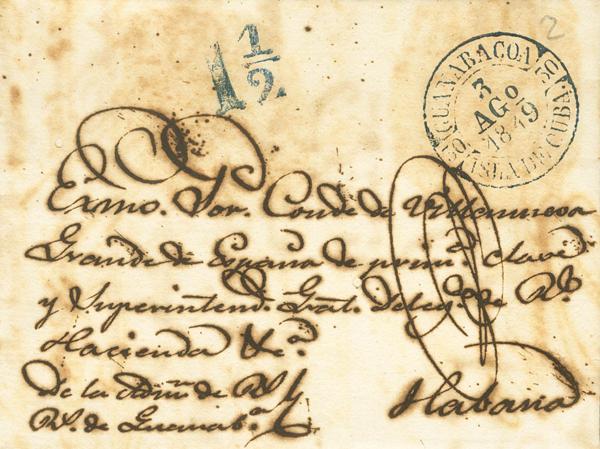 2
1 1/2
GUANABACOA
3
AGo
1849
ISLA DE CUBA
Exmo. Sor. Conde de Villanueva
Grande de España de prima. clase
y Superintend. Gral. Deleg.o de Rl.
Hacienda &c.a
De la Admn. de Rs.
Rs. de Guanab.a
Habana